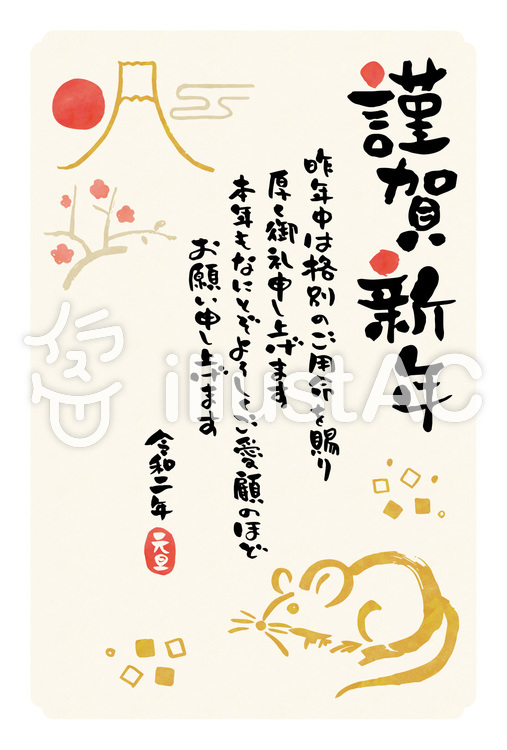 謹賀新年
昨年中は格別のご用命を賜り
厚く御礼申し上げます
本年もなにとぞよろしくご愛顧のほど
お願い申し上げます
令和二年
元旦
イラストAC
illustAC